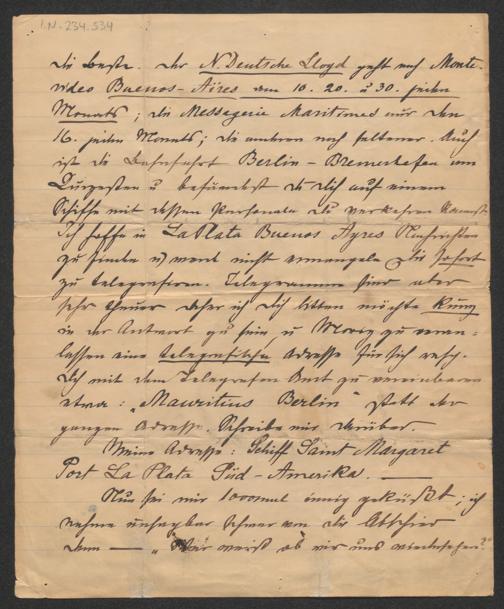 I.N. 234.534
die beste. Der N. Deutsche Lloyd geht nach Monte-
video Buenos-Aires am 10. 20. u 30. jeden
Monats; die Messagerie Maritimes nur den
16. jeden Monats; die anderen noch seltener. Auch
ist die Bahnfahrt Berlin – Bremerhafen am
Kürzesten u befindest du dich auf einem
Schiffe mit dessen Personale du verkehren kannst
Ich hoffe in La Plata Buenos Ayres Nachrichten
zu finden u werde nicht ermangeln dir sofort
zu telegrafieren. Telegramme sind aber
sehr theuer daher ich dich bitten möchte kurz
in der Antwort zu sein, u Moriz zu veran-
lassen eine telegrafische Adresse für sich resp.
dich mit dem Telegrafen Amt zu vereinbaren
etwa: „Mauritius Berlin" statt der
ganzen Adresse. Schreibe mir darüber.
Meine Adresse: Schiff Saint Margaret
Port La Plata Süd-Amerika.
Nun sei mir 1000mal innig geküßt; ich
nehme unsagbar schwer von dir Abschied
denn — „Wer weiß ob wir uns wiedersehen?"